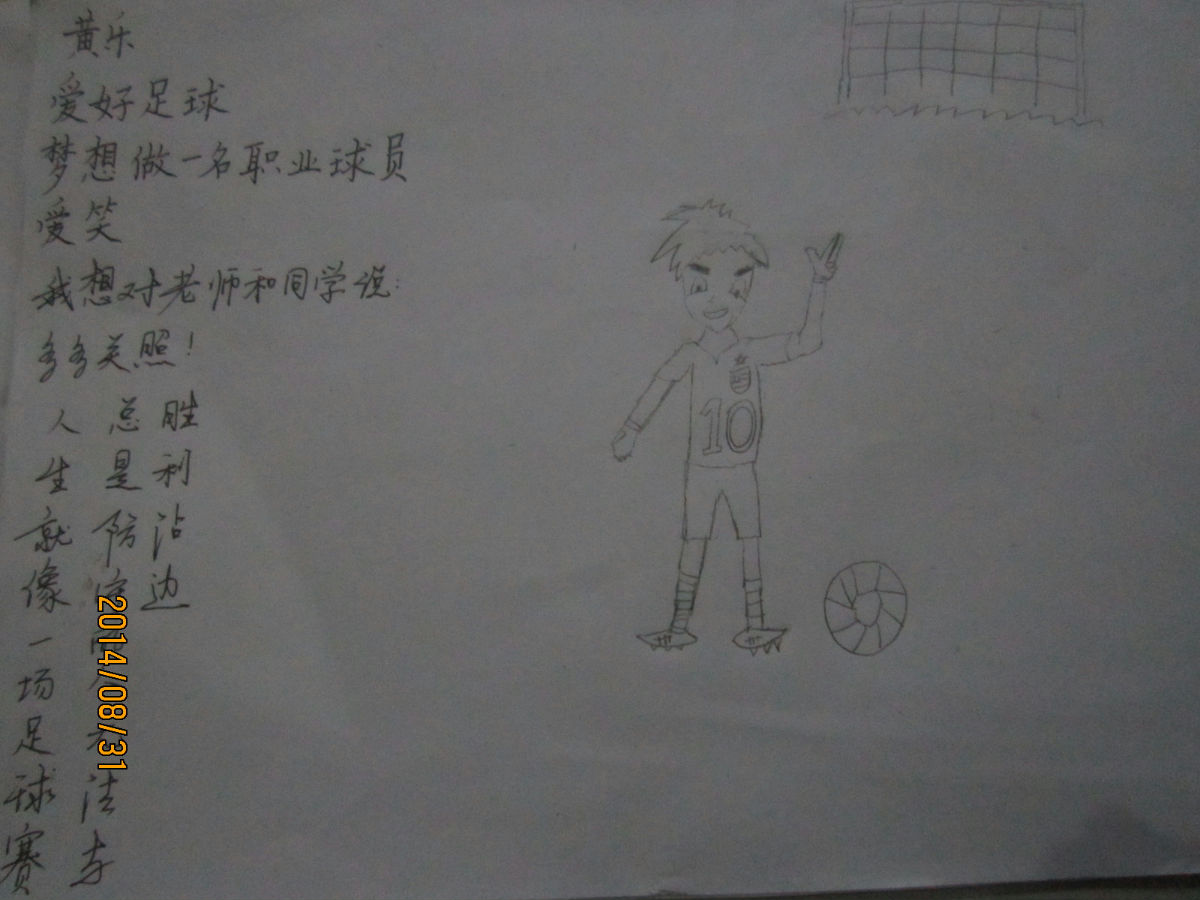 黄乐
爱好足球
梦想做一名职业球员
爱笑
我想对老师和同学说:
多多关照!
人生就像一场足球赛
总是防守
法与
胜利沾边
10
2014/08/31